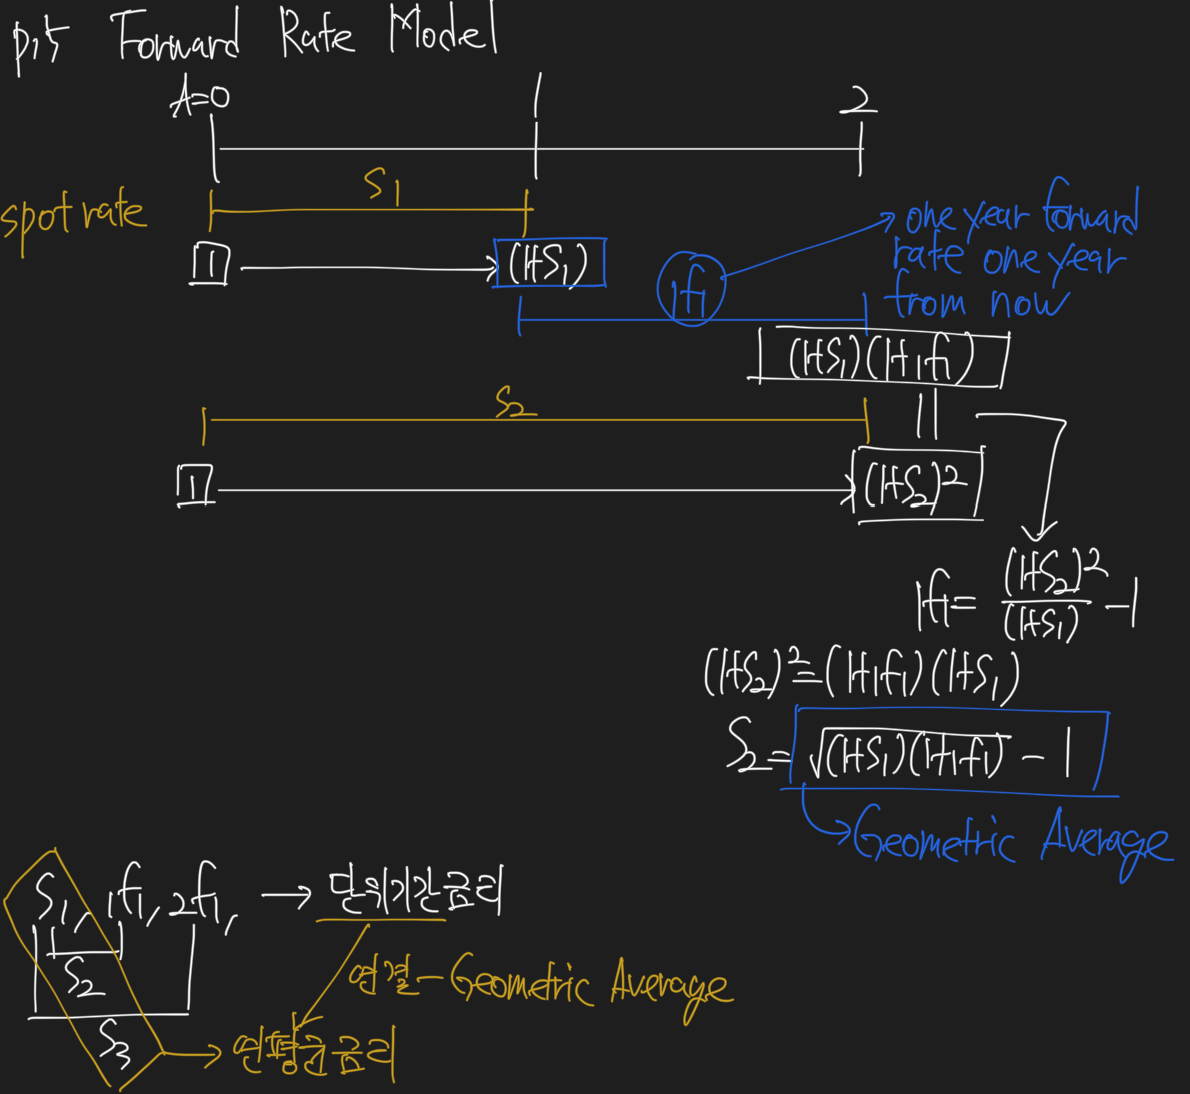 p.15 Forward Rate Model
t=0 1 2
spot rate S₁
1 (1+S₁)
₁f₁
one year forward
rate one year
from now
(1+S₁)(1+₁f₁)
S₂
||
1 (1+S₂)²
₁f₁ = (1+S₂)²/(1+S₁) - 1
(1+S₂)² = (1+₁f₁)(1+S₁)
S₂ = √(1+S₁)(1+₁f₁) - 1
Geometric Average
S₁, ₁f₁, ₂f₁, → 단위기간금리
S₂
연결 - Geometric Average
S₃
연평균금리